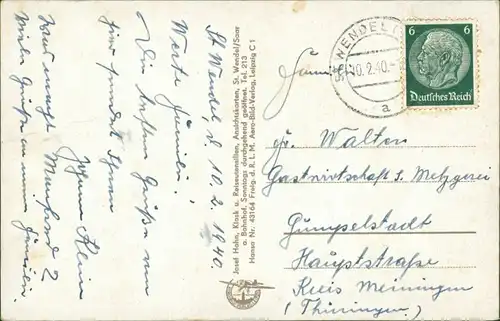 St. Wendel, d. 10.2.1940.
Werte Familie!
Die besten Grüße von
hier sendet Ihnen
Johann Klein
Manfred 2
Viele Grüße an
Familie
Josef Hahn, Kiosk u. Reiseutensilien, Ansichtskarten, St. Wendel/Saar
a. Bahnhof. Sonntags durchgehend geöffnet. Tel. 213
Hansa Nr. 43164 Freig. d. R.L.M. Aero-Bild-Verlag, Leipzig C 1
ST. WENDEL
10.2.40.
a
6 6
Deutsches Reich
Familie
Walten
Gastwirtschaft u. Metzgerei
Gümpelstadt
Hauptstraße
Kreis Meiningen
(Thüringen)